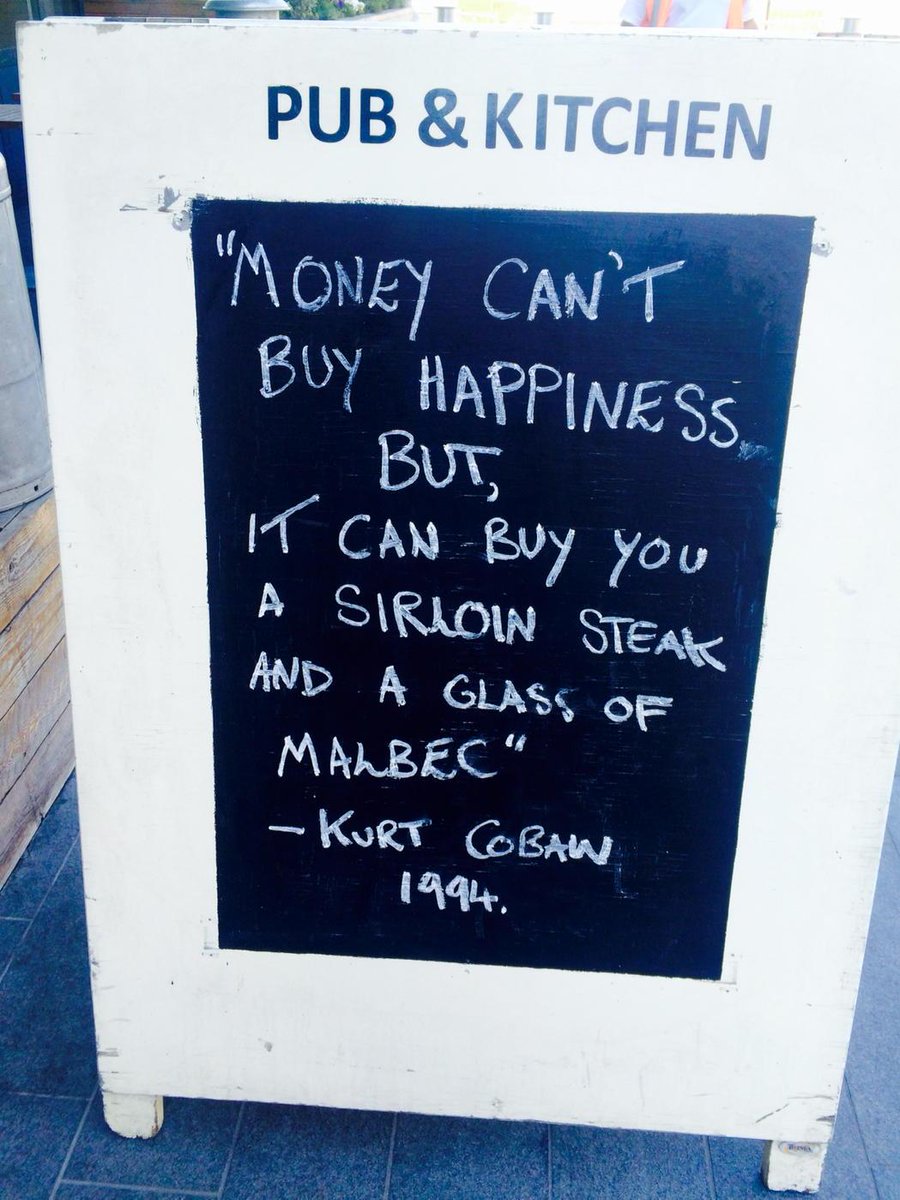 PUB & KITCHEN
"MONEY CAN'T
BUY HAPPINESS...
BUT,
IT CAN BUY YOU
A SIRLOIN STEAK
AND A GLASS OF
MALBEC"
- KURT COBAIN
1994.